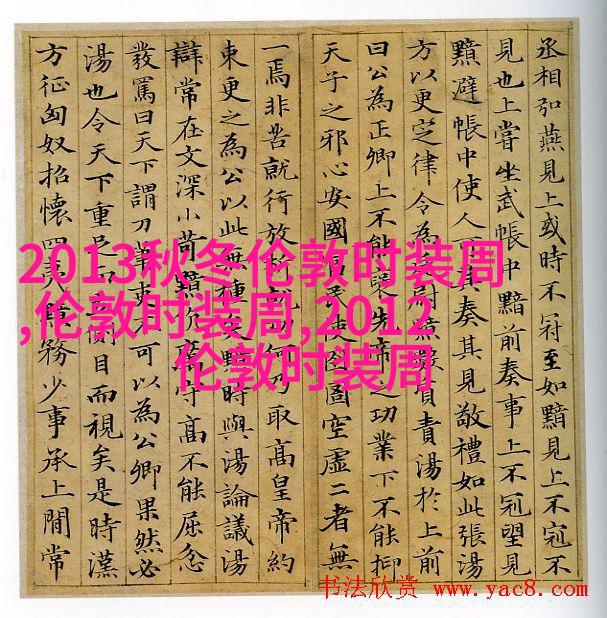 丞相弘燕見上或時不冠至如黯見上不冠不
見也上嘗坐武帳中黯前奏事上不冠望見
黯避帳中使人可其奏其見敬禮如此張湯
方以更定律令為廷尉黯質責湯於上前
曰公為正卿上不能先帝之功業下不能抑
天子之邪心安國富民使囹圄空虛二者無
一焉非苦就行放就功何乃取高皇帝約
束更之為公以此無種矣黯時與湯論議湯
辯常在文深小苛黯守高不能屈忿
發罵曰天下謂刀筆吏不可以為公卿果然必
湯也令天下重足而側目而視矣是時漢
方征匈奴招懷四夷務少事承上間常
2013秋冬伦敦时装周
,伦敦时装周,2012
伦敦时装周
书法欣赏 www.yac8.com